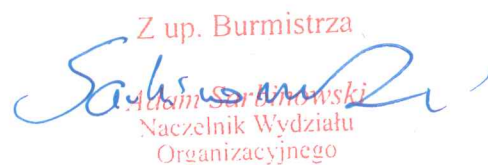 Z up. Burmistrza
Adam Sarbinowski
Naczelnik Wydziału
Organizacyjnego